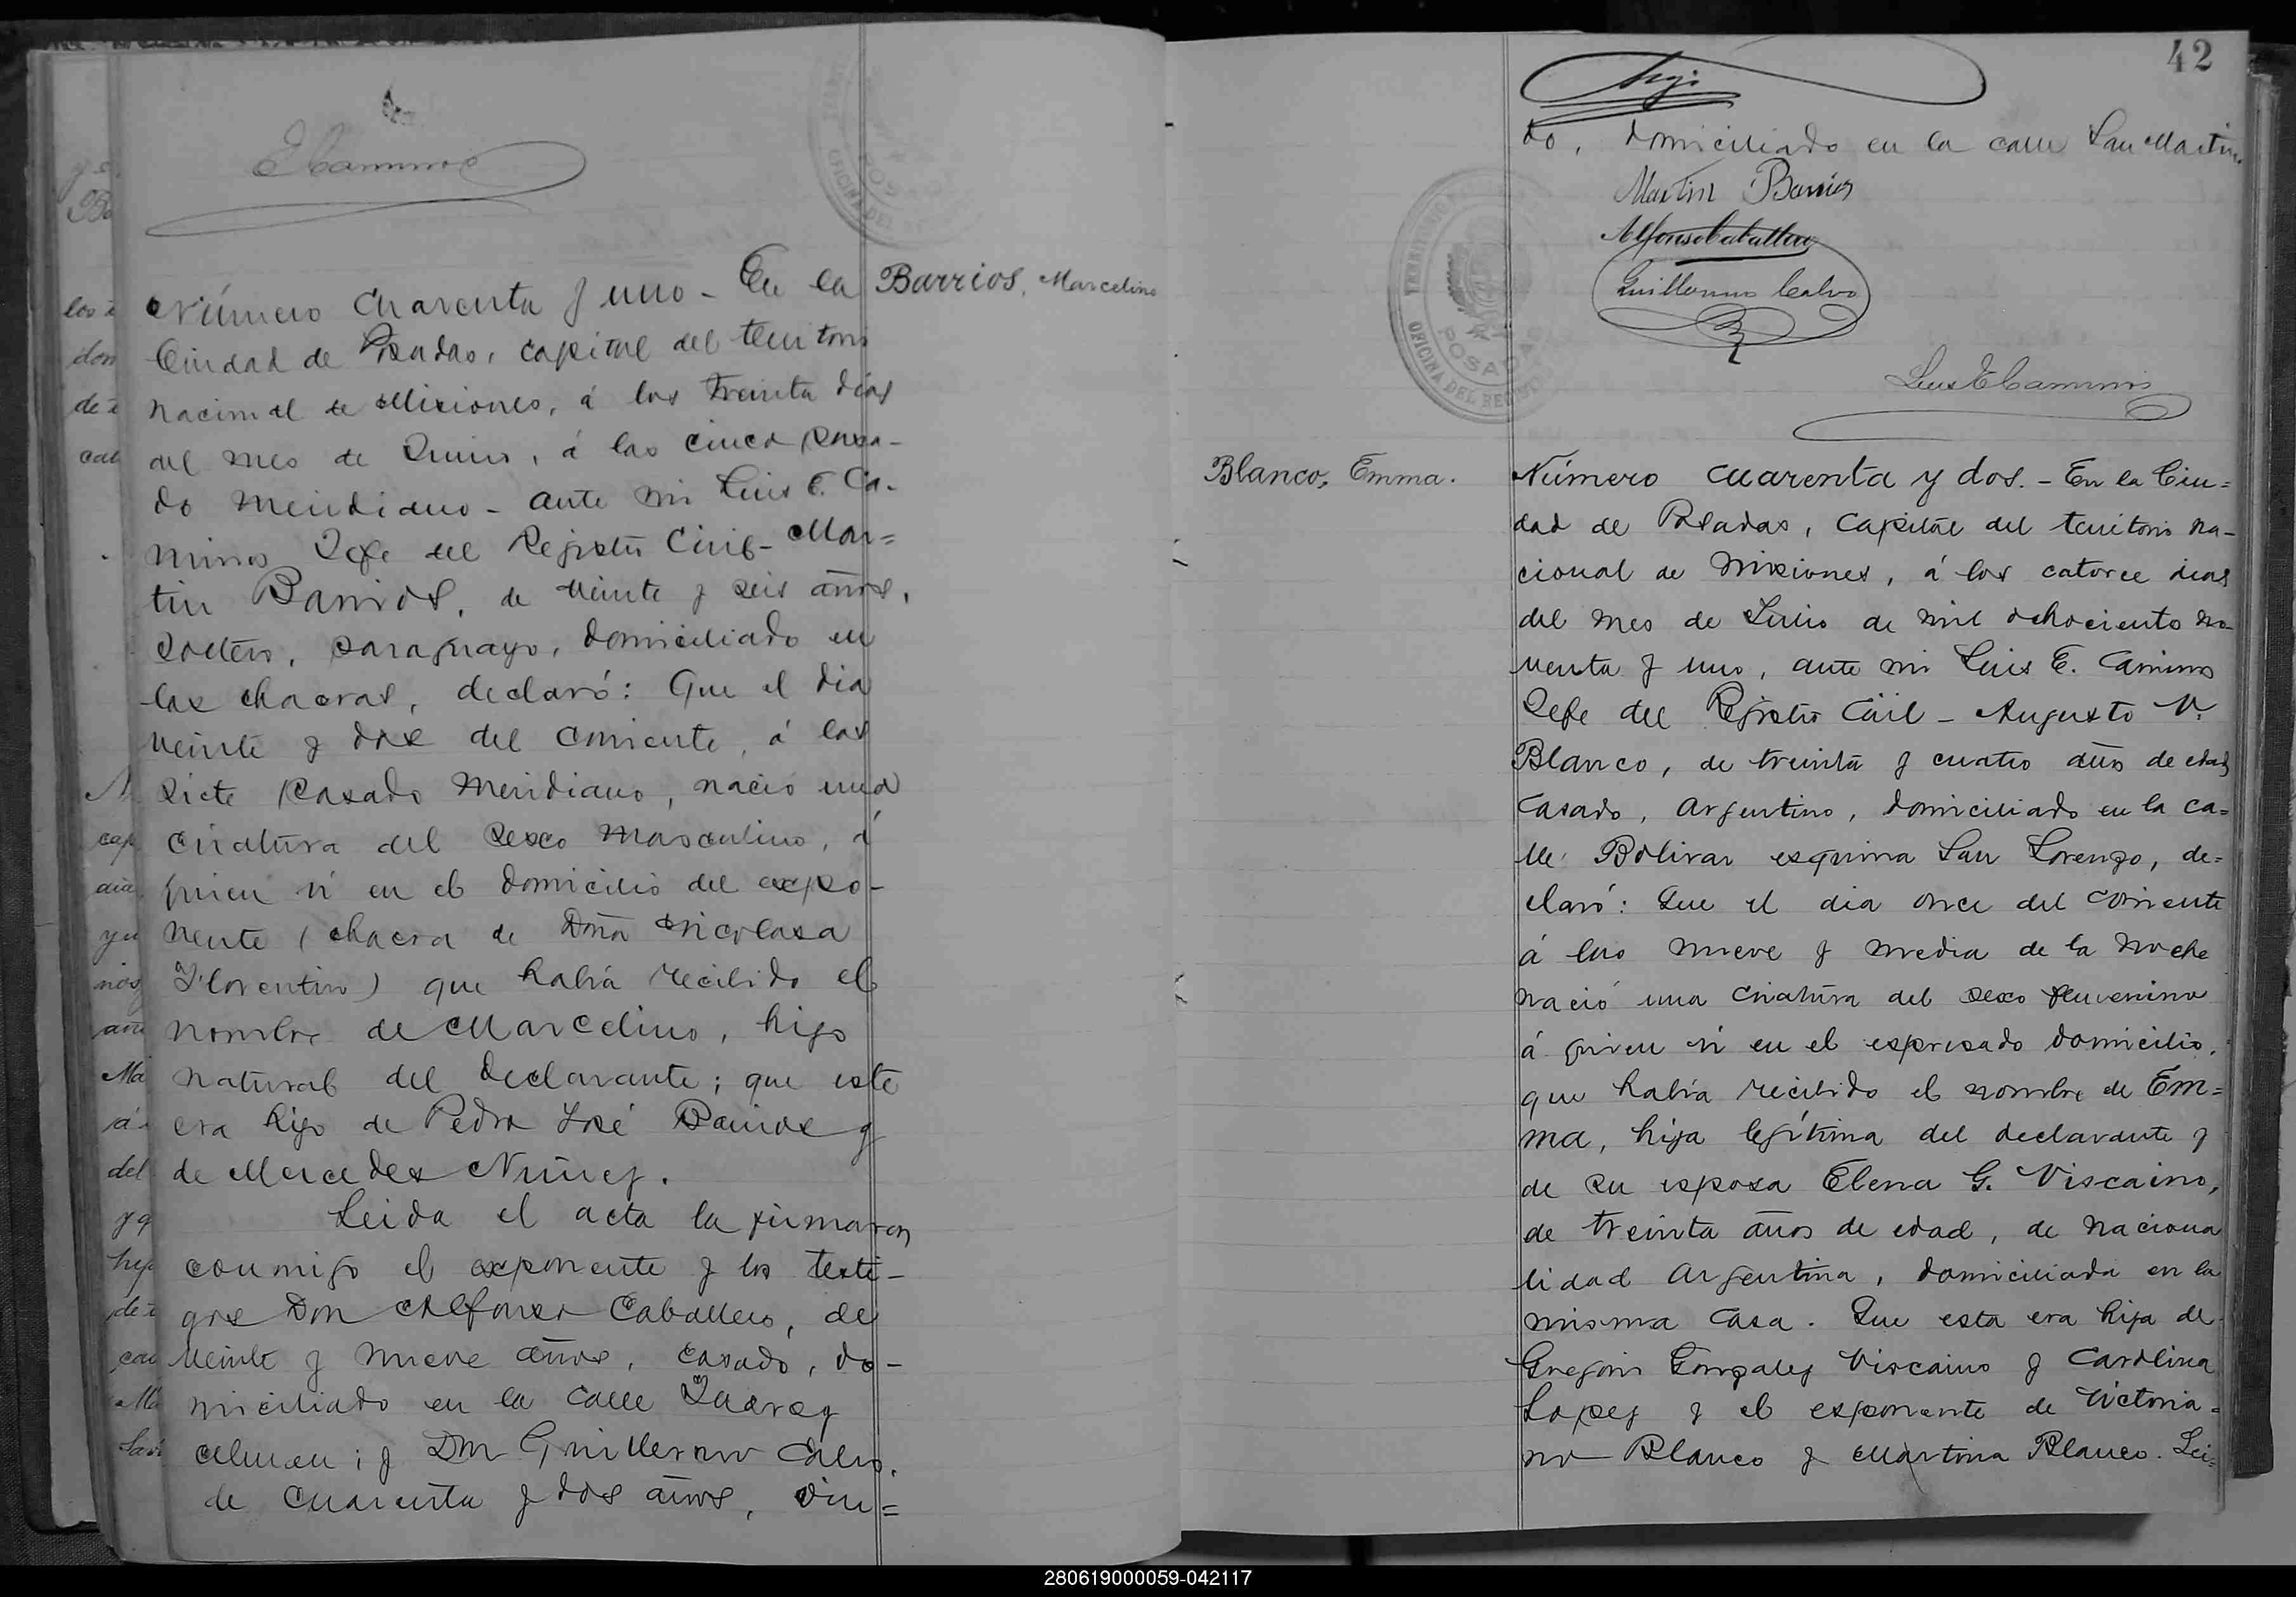 LCaminos
Número cuarenta y uno - En la
Barrios, Marcelino
Ciudad de Posadas, capital del territorio
nacional de Misiones, á los treinta dias
del mes de Junio, á las cinco pasa-
do meridiano - ante mi Luis E. Ca-
minos Jefe del Registro Civil - Mar=
tin Barrios, de veinte y seis años,
soltero, paraguayo, domiciliado en
las chacras, declaró: Que el dia
veinte y dos del corriente, á las
siete pasado meridiano, nació una
criatura del sexo masculino, á
quien vi en el domicilio del expo-
nente (chacra de Doña Nicolasa
Florentin) que habia recibido el
nombre de Marcelino, hijo
natural del declarante; que este
era hijo de Pedro José Barrios y
de Mercedes Nuñez.
Leida el acta la firmaron
conmigo el exponente y los testi-
gos Don Alfonso Caballero, de
veinte y nueve años, casado, do-
miciliado en la calle Juarez
Celman; y Don Guillermo Calvo,
de cuarenta y dos años, viu=
42
do, domiciliado en la calle San Martin
Martin Barrios
Alfonso Caballero
Guillermo Calvo
POSADAS
OFICINA DEL
Luis E Caminos
Blanco, Emma.
Número cuarenta y dos. - En la Ciu=
dad de Posadas, Capital del territorio na-
cional de Misiones, á los catorce dias
del mes de Julio de mil ochociento no-
venta y uno, ante mi Luis E. Caminos
Jefe del Registro Civil - Augusto V.
Blanco, de treinta y cuatro años de edad
casado, Argentino, domiciliado en la ca=
lle Bolivar esquina San Lorenzo, de=
claró: Que el dia once del corriente
á las nueve y media de la noche
nació una criatura del sexo femenino
á quien vi en el espresado domicilio,
que habia recibido el nombre de Em=
ma, hija legítima del declarante y
de su esposa Elena G. Viscaino,
de treinta años de edad, de naciona
lidad Argentina, domiciliada en la
misma casa. Que esta era hija de
Gregorio Gonzalez Viscaino y Carolina
Lopez y el exponente de Victoria=
no Blanco y Martina Blanco. Lei=
280619000059-042117